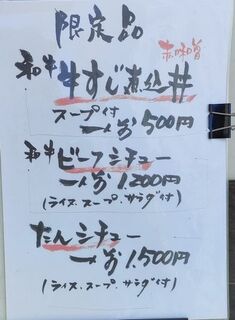 限定品
赤味噌
和牛 牛すじ煮込丼
スープ付
500円
和牛 ビーフシチュー
1.200円
(ライス.スープ.サラダ付)
たんシチュー
1.500円
(ライス.スープ.サラダ付)